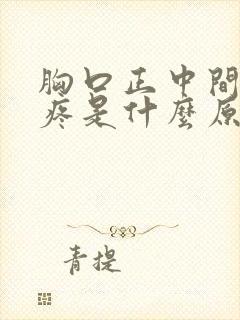 胸口正中間
疼是什麼原
青提